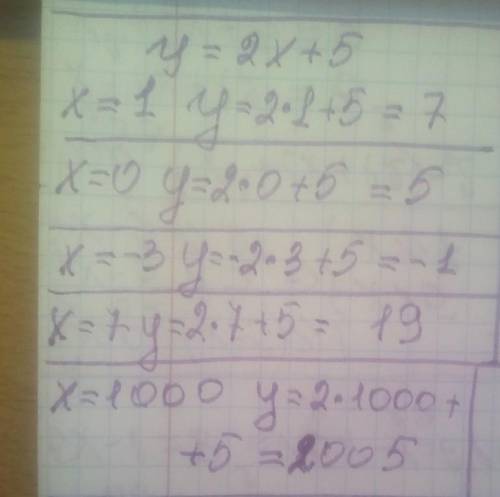 y = 2x+5
x=1 y=2·1+5 = 7
x=0 y=2·0+5 = 5
x=-3 y=-2·3+5 = -1
x=7 y=2·7+5 = 19
x=1000 y=2·1000+
+5 = 2005